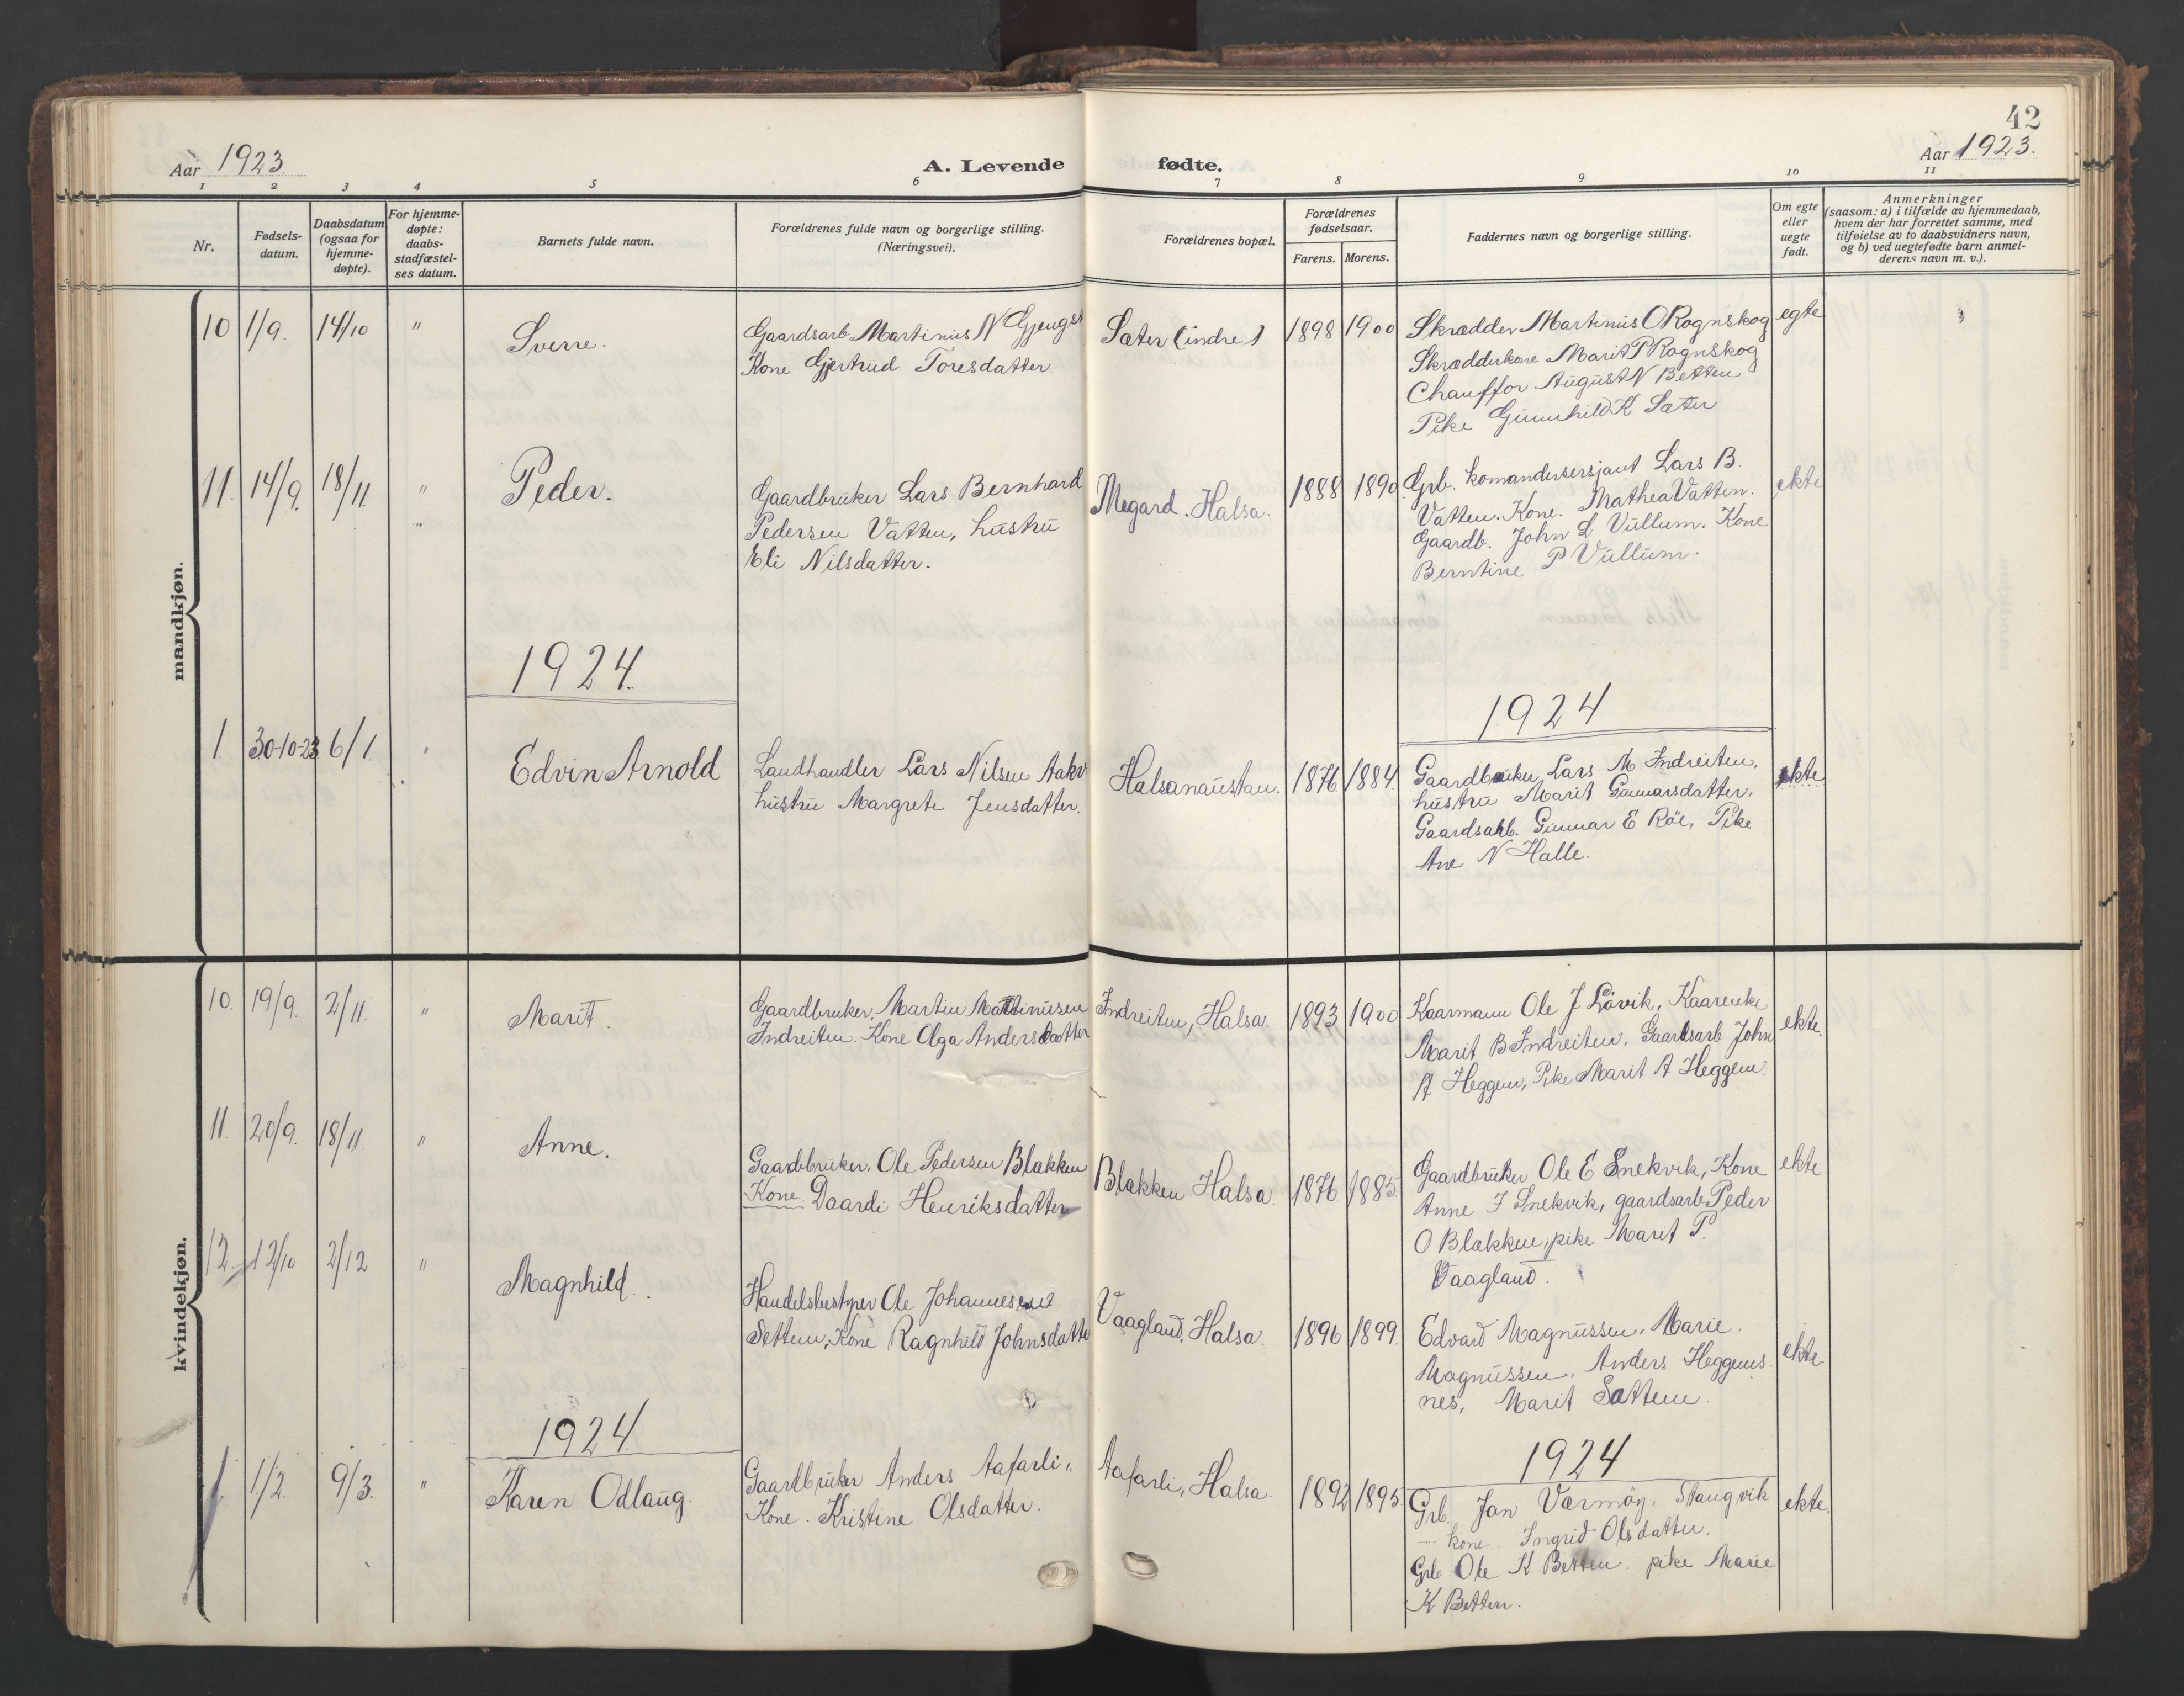 42
Aar 1923.
A. Levende fødte.
Aar 1923.
1 2 3 4 5 6 7 8 9 10 11
Nr.
Fødsels-
datum.
Daabsdatum
(ogsaa for
hjemme-
døpte).
For hjemme-
døpte:
daabs-
stadfæstel-
ses datum.
Barnets fulde navn.
Forældrenes fulde navn og borgerlige stilling.
(Næringsvei).
Forældrenes bopæl.
Forældrenes
fødselsaar.
Farens. Morens.
Faddernes navn og borgerlige stilling.
Om egte
eller
uegte
født.
Anmerkninger
(saasom: a) i tilfælde av hjemmedaab,
hvem der har forrettet samme, med
tilføielse av to daabsvidners navn,
og b) ved uegtefødte barn anmel-
derens navn m. v.).
mandkjøn.
10 1/9. 14/10 "
Sverre.
Gaardsarb Martinus N
Kone Gjertrud Toresdatter
Sæter (indre)
1898 1900
Skrædder Martinus O Rognskog
Skrædderkone Marit P Rognskog
Chauffør August N Betten
Pike Gunnhild K Sæter
egte
11. 14/9. 18/11. "
Peder.
Gaardbruker Lars Bernhard
Pedersen Vatten, hustru
Eli Nilsdatter.
Megard. Halsa.
1888 1890.
Grb. komandersersjant Lars B.
Vatten. Kone. Mathea Vatten.
Gaardb. John L Vullum. Kone
Berntine P Vullum.
ekte
1924.
1924
1 30-10-23 6/1 "
Edvin Arnold
Landhandler Lars Nilsen Aakv
hustru Margrete Jensdatter.
Halsanaustan.
1876 1884.
Gaardbruker Lars M Indreiten,
hustru Marit Gunnarsdatter.
Gaardsarb. Gunnar E Røe, Pike
Ane N Halle.
ekte
kvindekjøn.
10. 19/9. 2/11. "
Marit.
Gaardbruker, Martin Martinussen
Indreiten. Kone Olga Andersdatter
Indreiten, Halsa.
1893 1900
Kaarmann Ole J Løvik, Kaarenke
Marit B Indreiten, Gaardsarb John
A Heggem, Pike Marit A Heggem.
ekte.
11. 20/9. 18/11. "
Anne.
Gaardbruker. Ole Pedersen Blakken
Kone. Daardi Henriksdatter
Blakken Halsa.
1876 1885.
Gaardbruker Ole E Snekvik, Kone
Anne J Snekvik, gaardsarb Peder
O Blakken, pike Marit P.
Vaagland.
ekte
12. 12/10 2/12 "
Magnhild.
Handelsbestyrer Ole Johannessen
Settem, Kone Ragnhild Johnsdatte
Vaagland, Halsa.
1896 1899.
Edvard Magnussen, Marie.
Magnussen, Anders Heggems
nes, Marit Sættem.
ekte
1924
1924
1. 1/2. 9/3. "
Karen Odlaug.
Gaardbruker Anders Aafarli,
Kone. Kristine Olsdatter.
Aafarli, Halsa.
1892 1895
Grb. Jan Værmøy. Stangvik
kone. Ingrid Olsdatter.
Grb Ole K Betten. pike Marie
K Betten.
ekte.